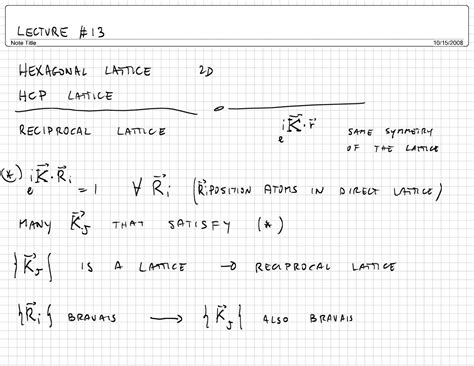 LECTURE #13
Note Title 10/15/2008
HEXAGONAL LATTICE 2D
HCP LATTICE
RECIPROCAL LATTICE e^{i\vec{K}·\vec{r}} SAME SYMMETRY
OF THE LATTICE
(*) e^{i\vec{K}·\vec{R}_i} = 1 ∀ \vec{R}_i (\vec{R}_i POSITION ATOMS IN DIRECT LATTICE)
MANY \vec{K}_J THAT SATISFY (*)
{\vec{K}_J} IS A LATTICE → RECIPROCAL LATTICE
{\vec{R}_i} BRAVAIS → {\vec{K}_J} ALSO BRAVAIS